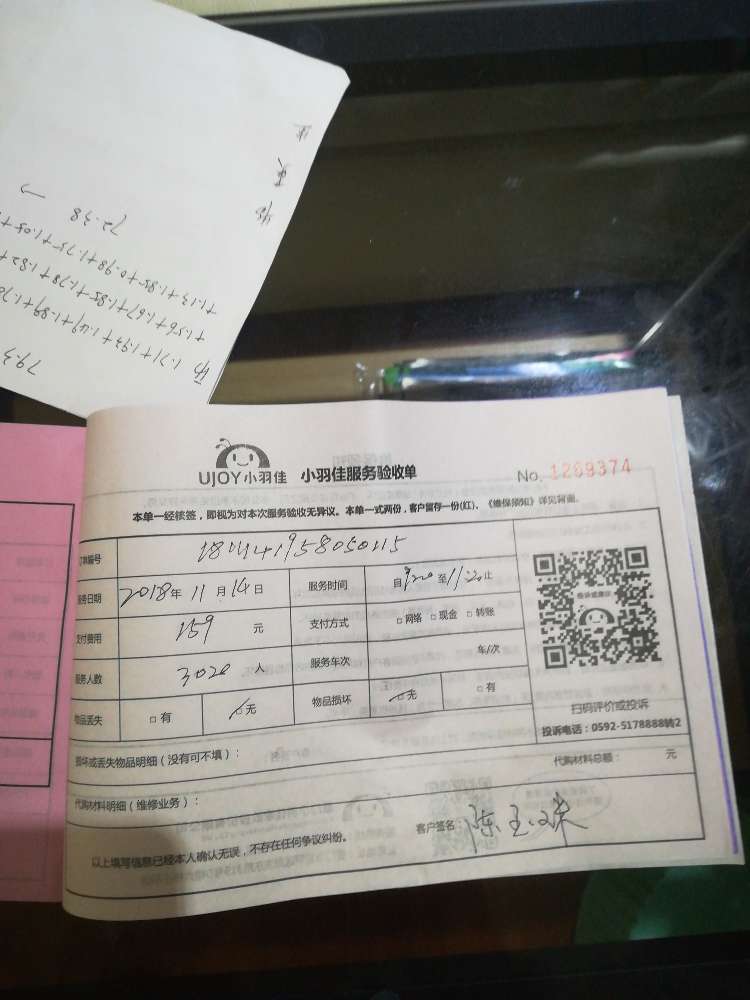 72.38
+1.13+1.85+0.98+1.75+1.05+
+1.56+1.67+1.85+1.78+1.82+
1.71+1.93+1.49+1.89+1.70
79.3
UJOY小羽佳 小羽佳服务验收单
No. 1269374
本单一经核签，即视为对本次服务验收无异议。本单一式两份，客户留存一份(红)、《维保须知》详见背面。
订单编号
服务日期 2018年 11月 14日 服务时间 自9:20至11:20止
支付费用 159 元 支付方式 □网络 □现金 □转账
服务人数 3020 人 服务车次 车/次
物品丢失 □有 □无 物品损坏 □无 □有
扫码评价或投诉
投诉电话：0592-5178888转2
损坏或丢失物品明细（没有可不填）：
代购材料明细（维修业务）： 代购材料总额： 元
以上填写信息已经本人确认无误，不存在任何争议纠纷。 客户签名：